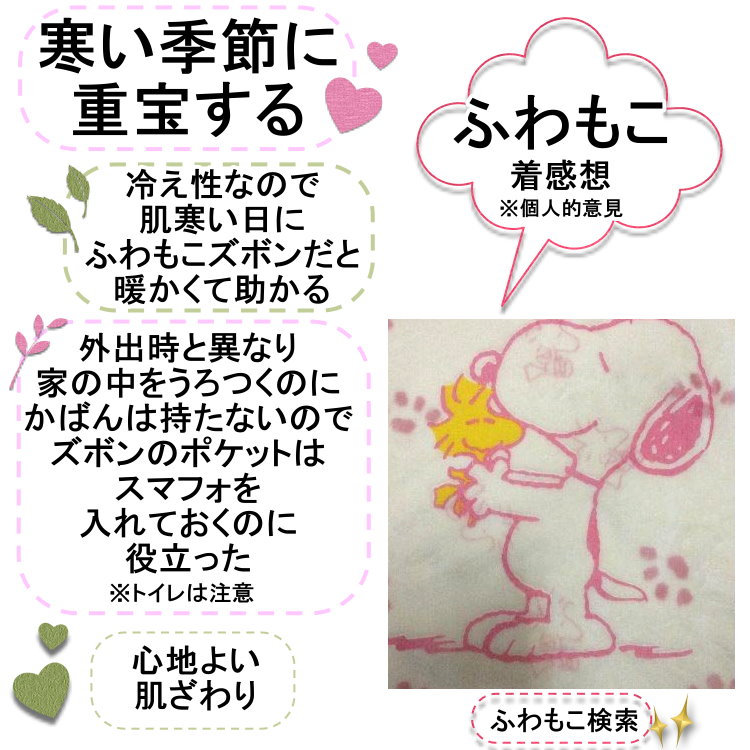 寒い季節に
重宝する
ふわもこ
着感想
※個人的意見
冷え性なので
肌寒い日に
ふわもこズボンだと
暖かくて助かる
外出時と異なり
家の中をうろつくのに
かばんは持たないので
ズボンのポケットは
スマフォを
入れておくのに
役立った
※トイレは注意
心地よい
肌ざわり
ふわもこ検索